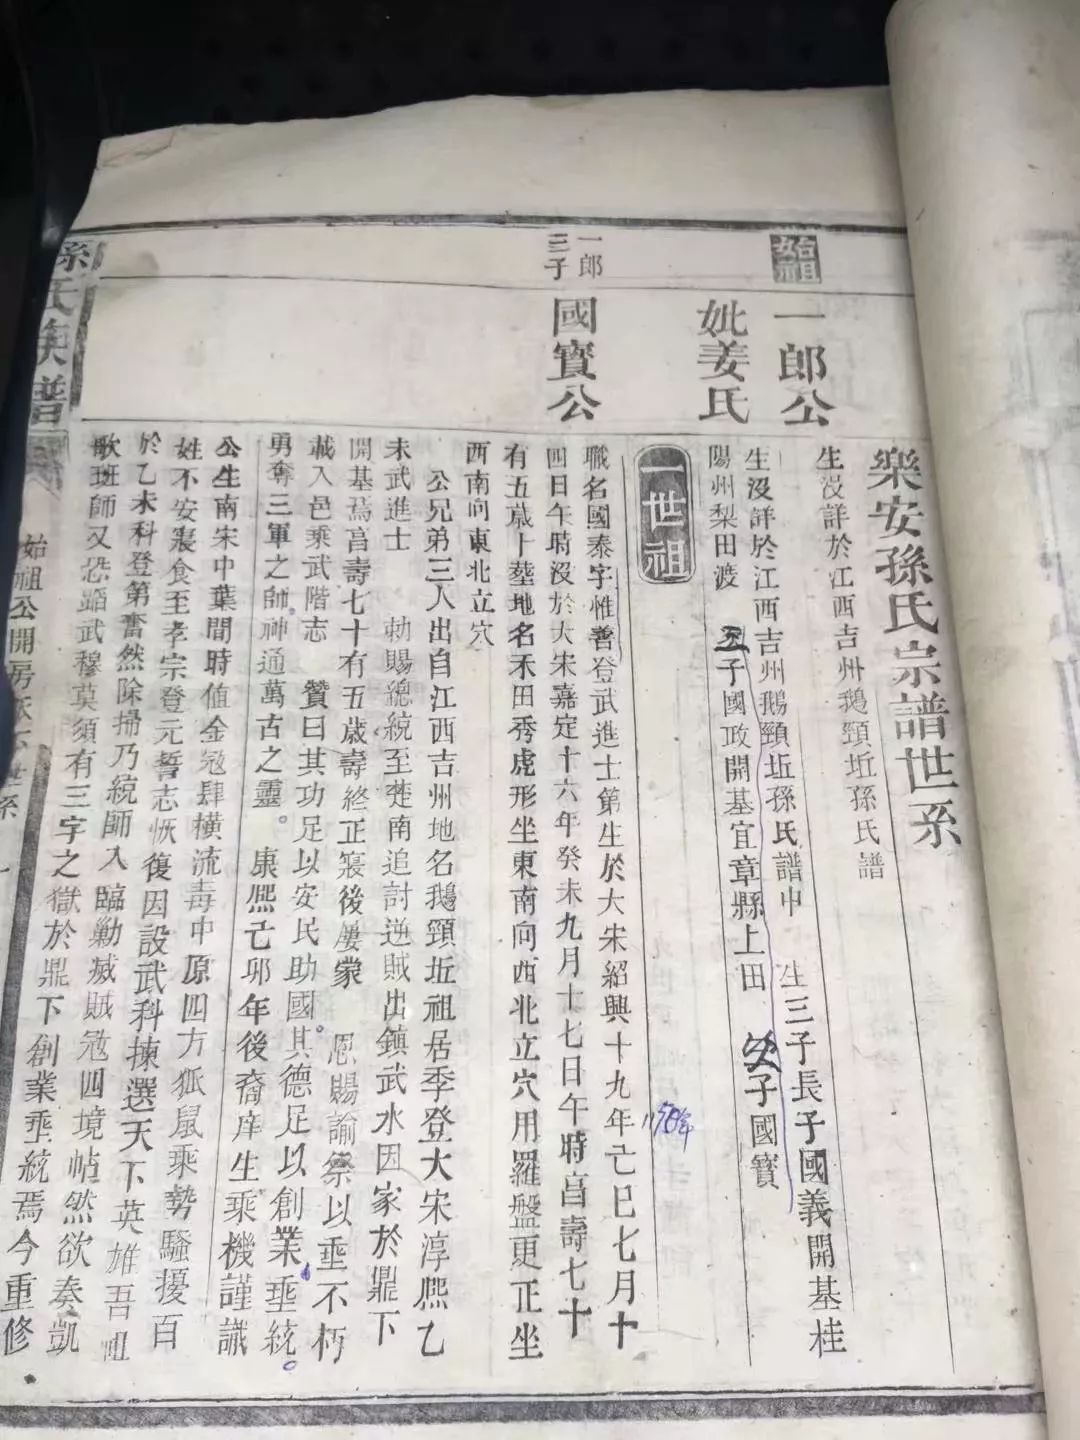 樂安孫氏宗譜世系
始祖
一郎公
生没詳於江西吉州鵝頸坵孫氏譜
妣姜氏
生没詳於江西吉州鵝頸坵孫氏譜中 生三子長子國義開基桂
陽州梨田渡 子國政開基宜章縣上田 子國寶
一世祖
1150年
一郎
三子
國寶公
職名國泰字惟善登武進士第生於大宋紹興十九年己巳七月十
四日午時没於大宋嘉定十六年癸未九月十七日午時亯壽七十
有五歲卜塟地名禾田秀虎形坐東南向西北立穴用羅盤更正坐
西南向東北立穴
公兄弟三人出自江西吉州地名鵝頸坵祖居季登大宋淳熈乙
未武進士 勅賜總統至楚南追討逆賊出鎮武水因家於鼎下
開基焉亯壽七十有五歲壽終正寢後屢蒙 恩賜諭祭以垂不朽
載入邑乘武階志 贊曰其功足以安民助國。其德足以創業垂統。
勇奪三軍之師神通萬古之靈。 康熈己夘年後裔庠生乘機謹識
公生南宋中葉間時值金冦肆橫流毒中原四方狐鼠乘勢騷擾百
姓不安寢食至孝宗登元誓志恢復因設武科揀選天下英雄吾祖
於乙未科登第奮然除掃乃統師入臨勦滅賊冦四境帖然欲奏凱
歌班師又恐蹈武穆莫須有三字之獄於鼎下創業垂統焉今重修
孫氏族譜
始祖公開房派云世系
一